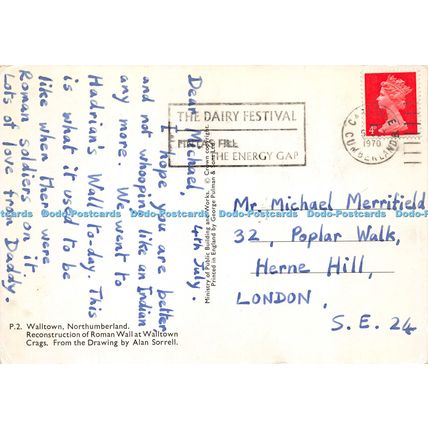 Dear Michael, 4th July.
I hope you are better
and not whooping like an Indian
any more. We went to
Hadrian's Wall to-day. This
is what it used to be
like when there were
Roman soldiers on it
Lots of love from Daddy.
P.2. Walltown, Northumberland.
Reconstruction of Roman Wall at Walltown
Crags. From the Drawing by Alan Sorrell.
Ministry of Public Building and Works. © Crown copyright
Printed in England by George Pulman & Sons Ltd.
THE DAIRY FESTIVAL
THE ENERGY GAP
1970
CUMBERLAND
4D
Mr. Michael Merrifield
32, Poplar Walk,
Herne Hill,
LONDON,
S.E. 24
Dodo-Postcards Dodo-Postcards Dodo-Postcards Dodo-Postcards Dodo-Postcards